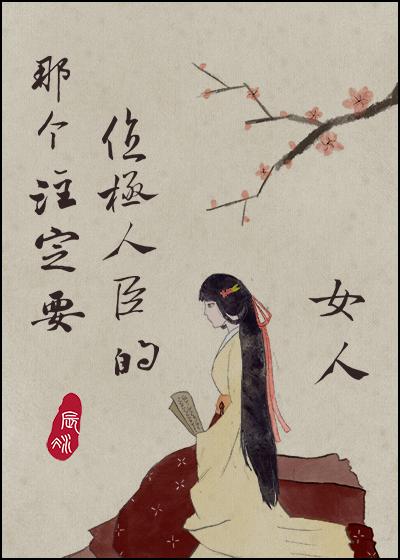 那个注定要
位極人臣的
女人
辰欢